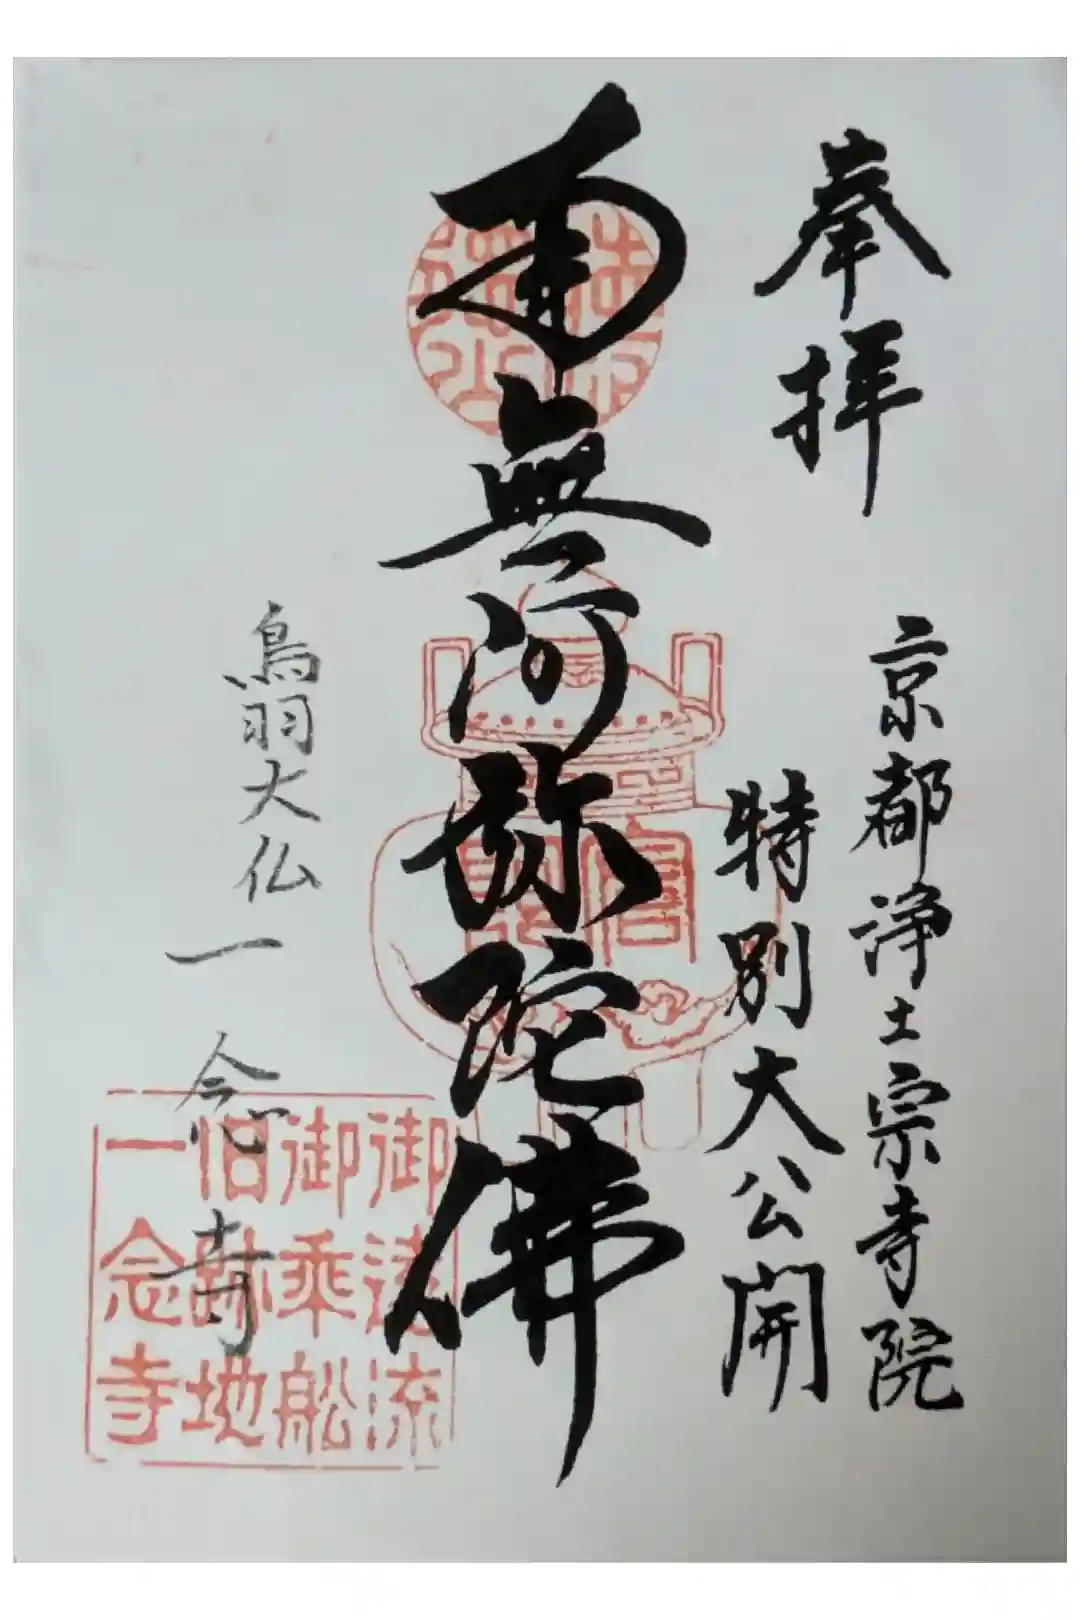 奉拝
京都浄土宗寺院
特別大公開
南無阿弥陀佛
鳥羽大仏
一念寺
御法流
御乘船
旧跡地
一念寺